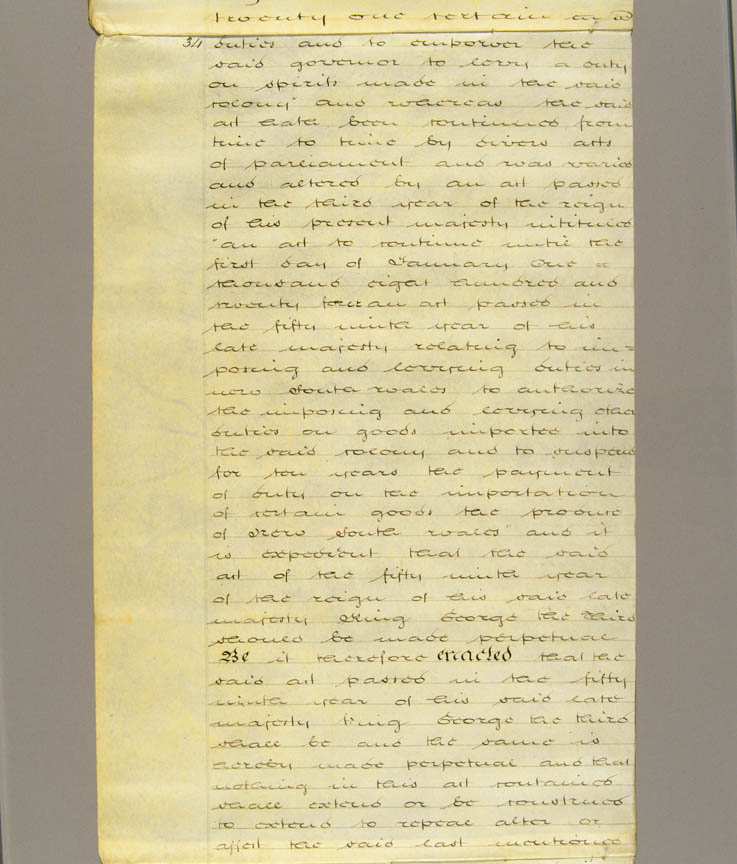 twenty one certain
34 duties and to empower the
said governor to levy a duty
on spirits made in the said
colony" and whereas the said
act hath been continued from
time to time by divers acts
of parliament and was varied
and altered by an act passed
in the third year of the reign
of his present majesty intituled
"an act to continue until the
first day of January One
thousand eight hundred and
twenty four an act passed in
the fifty ninth year of his
late majesty relating to im=
posing and levying duties in
new South wales to authorize
the imposing and levying other
duties on goods imported into
the said colony and to suspend
for ten years the payment
of duty on the importation
of certain goods the produce
of New South wales" and it
is expedient that the said
act of the fifty ninth year
of the reign of his said late
majesty King George the Third
should be made perpetual
Be it therefore enacted that the
said act passed in the fifty
ninth year of his said late
majesty king George the third
shall be and the same is
hereby made perpetual and that
nothing in this act contained
shall extend or be construed
to extend to repeal alter or
affect the said last mentioned